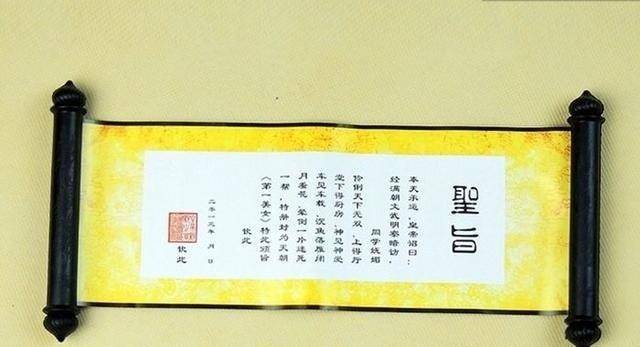 聖旨
奉天承运，皇帝诏曰：
经满朝文武明察暗访，
同学
伶俐天下无双，上得厅
堂下得厨房，神见神爱
车见车载，沉鱼落雁闭
月羞花，晕倒一片迷死
一帮，特册封为天朝
《第一美女》特此颁旨
钦此
二零一 年 月 日
钦此